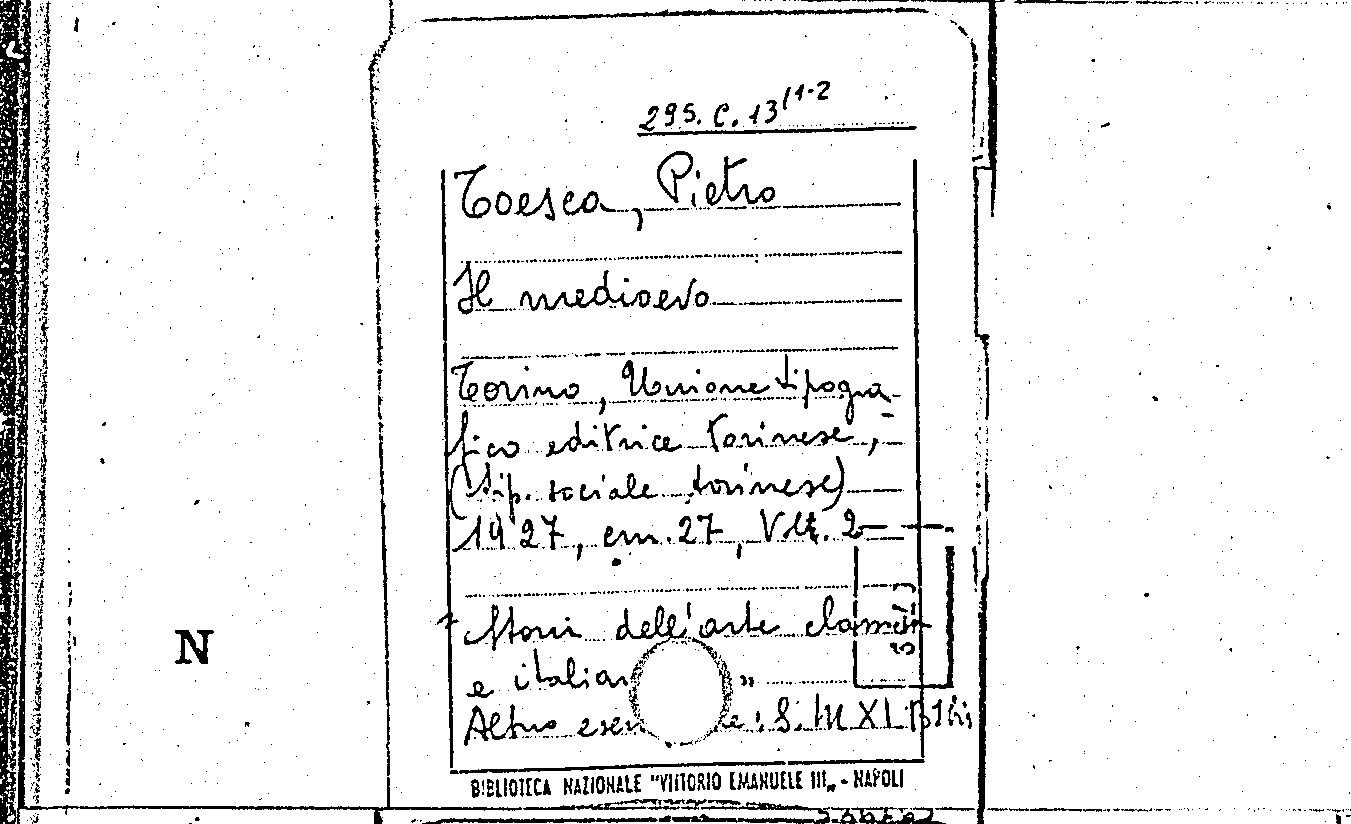 295. C. 13 /1-2
Toesca, Pietro
Il medioevo
Torino, Unione tipogra-
fico editrice torinese,
(tip. sociale torinese)
1927, cm. 27, Vll. 2
N
Storia dell'arte classica
e italian „
Altro esem e: S. M XL B
BIBLIOTECA NAZIONALE "VITTORIO EMANUELE III„ - NAPOLI